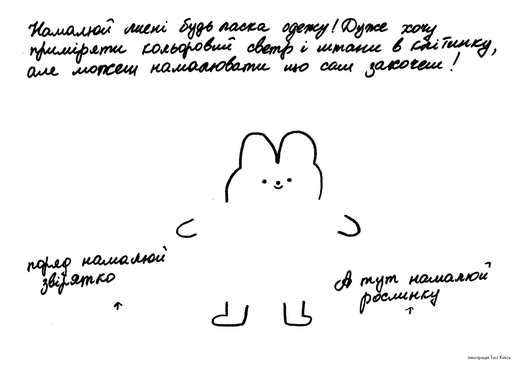 Намалюй мені будь ласка одежу! Дуже хочу
приміряти кольоровий светр і штани в клітинку,
але можеш намалювати що сам захочеш!
поряд намалюй
звірятко
А тут намалюй
рослинку
ілюстрація Тасі Кізісь